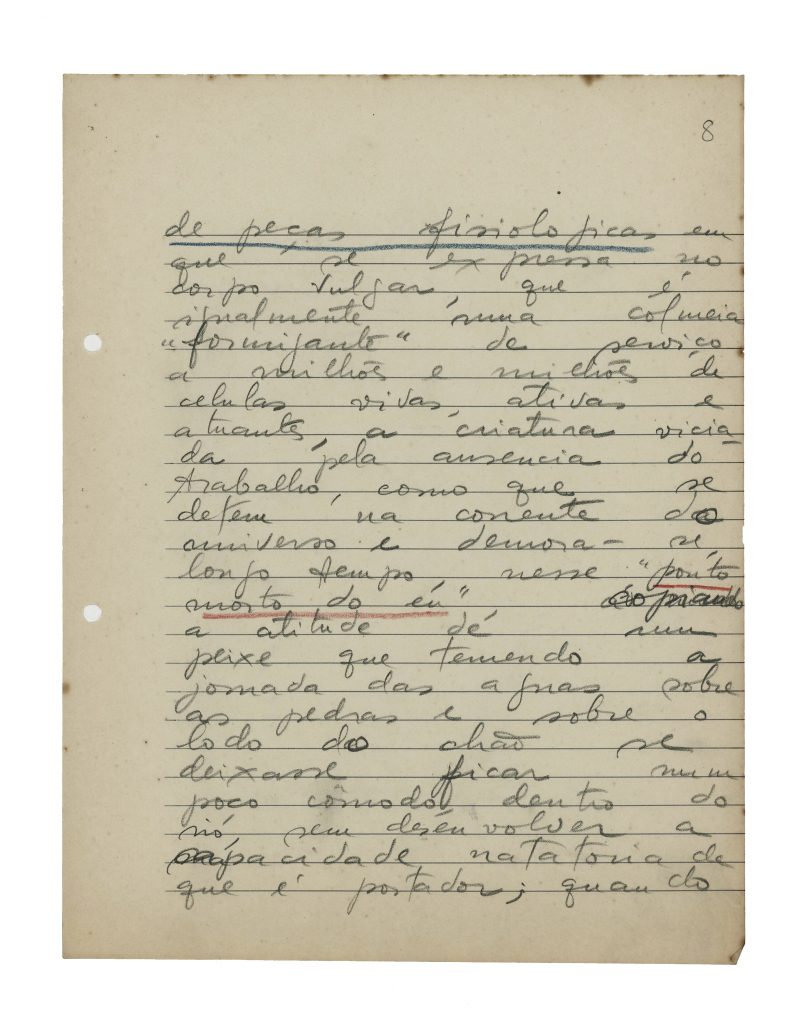 8
de peças fisiologicas em
que se expressa no
corpo vulgar, que é
igualmente numa colmeia
"formigante" de serviço
a milhões e milhões de
celulas vivas, ativas e
atuantes, a criatura vicia-
da pela ausencia do
trabalho, como que se
detem na corrente do
universo e demora-se,
longo tempo, nesse "ponto
morto do eu" copiando
a atitude de num
peixe que temendo a
jornada das aguas sobre
as pedras e sobre o
lodo do chão se
deixasse ficar num
poco cômodo, dentro do
rio, sem desenvolver a
capacidade natatoria de
que é portador; quando